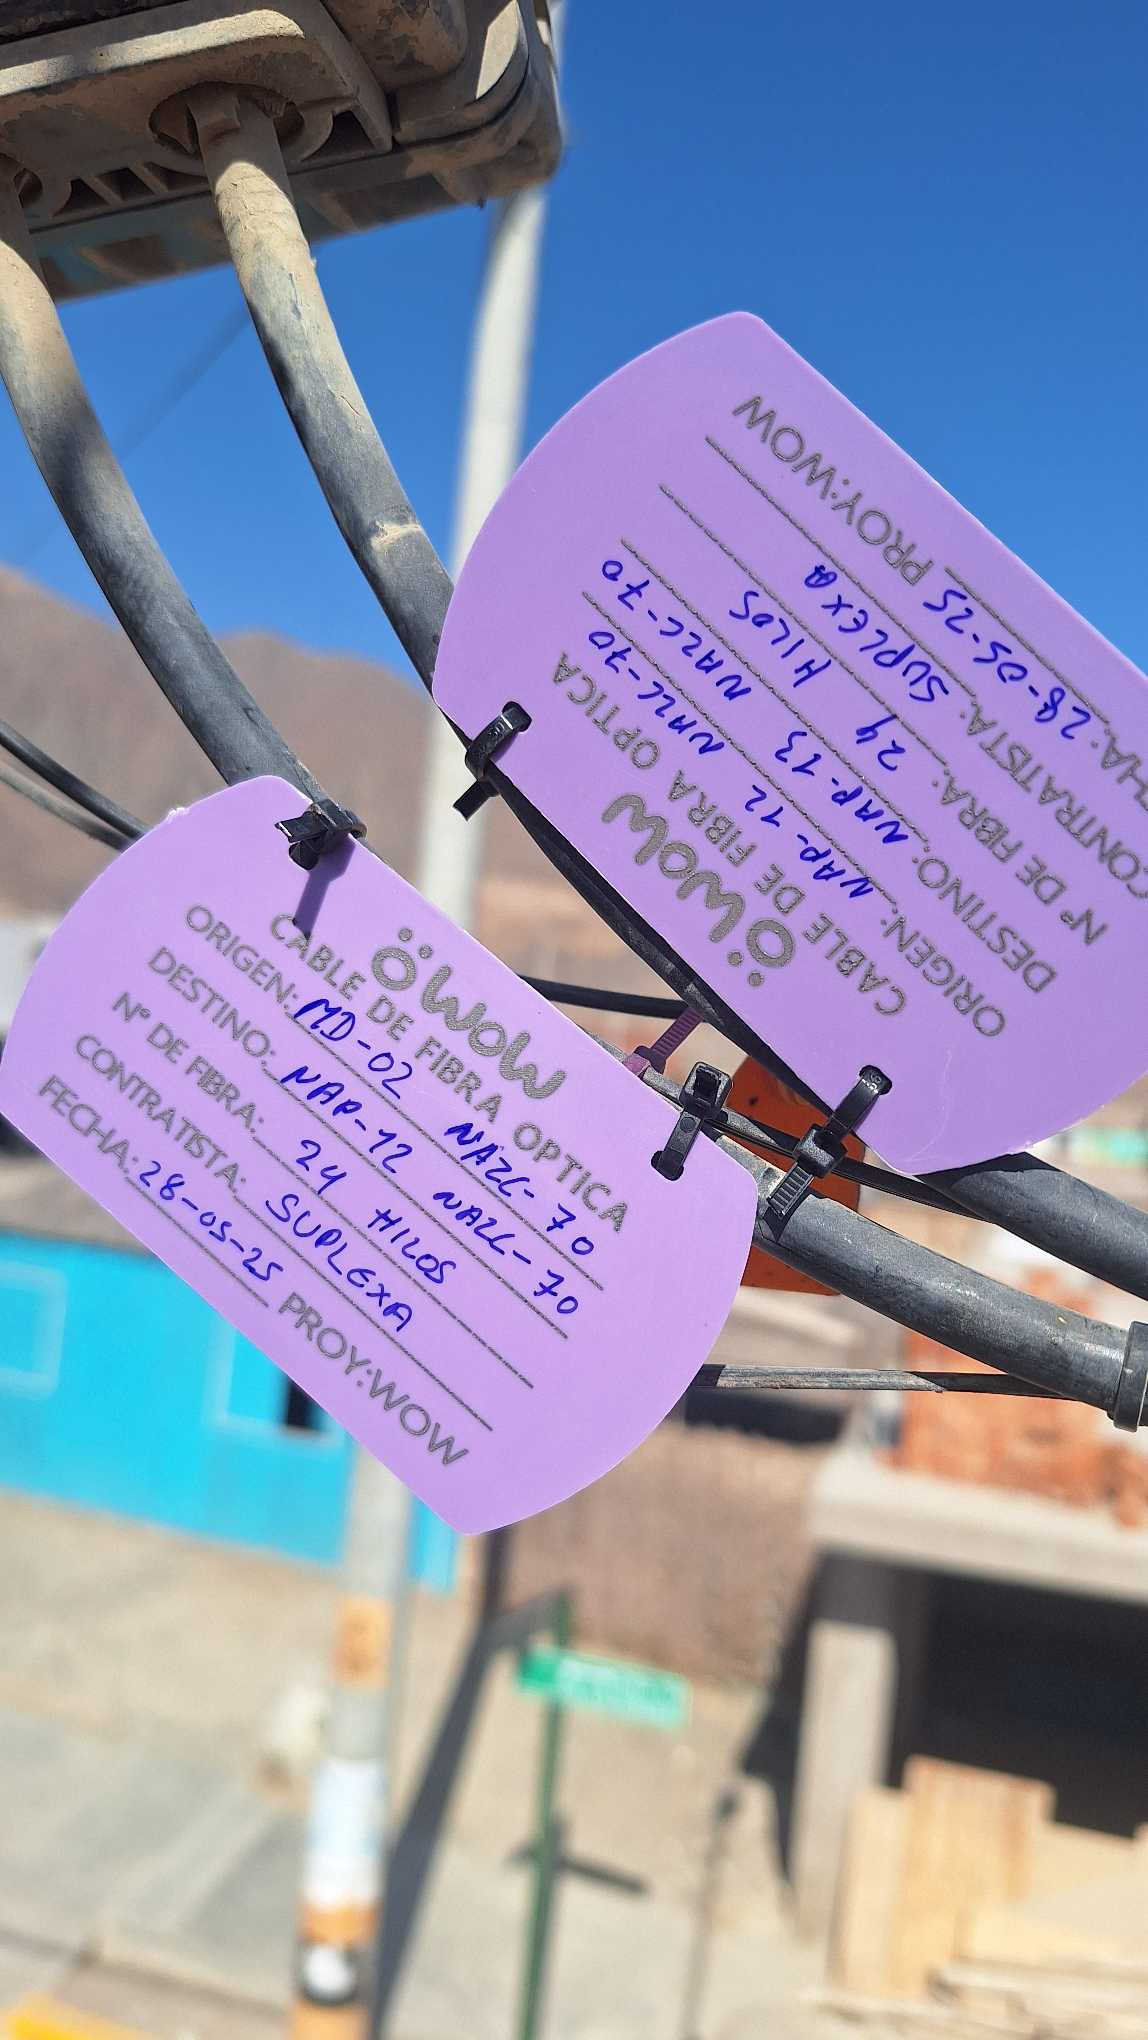 WOW
CABLE DE FIBRA OPTICA
ORIGEN: MD-02 NAZC-70
DESTINO: NAP-12 NAZC-70
N° DE FIBRA: 24 HILOS
CONTRATISTA: SUPLEXA
FECHA: 28-05-25 PROY:WOW
WOW
CABLE DE FIBRA OPTICA
ORIGEN: NAP-12 NAZC-70
DESTINO: NAP-13 NAZC-70
N° DE FIBRA: 24 HILOS
CONTRATISTA: SUPLEXA
28-05-25 PROY:WOW